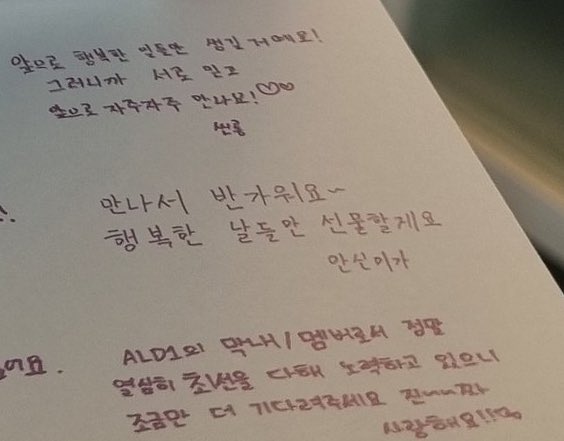 앞으로 행복한 일들만 생길거예요!
그러니까 서로 믿고
앞으로 자주자주 만나요!♡♡
씬롱
만나서 반가워요~
행복한 날들만 선물할게요
안신이가
어요.
ALD1의 막내/멤버로서 정말
열심히 최선을 다해 노력하고 있으니
조금만 더 기다려주세요 진~~짜
사랑해요!!♡